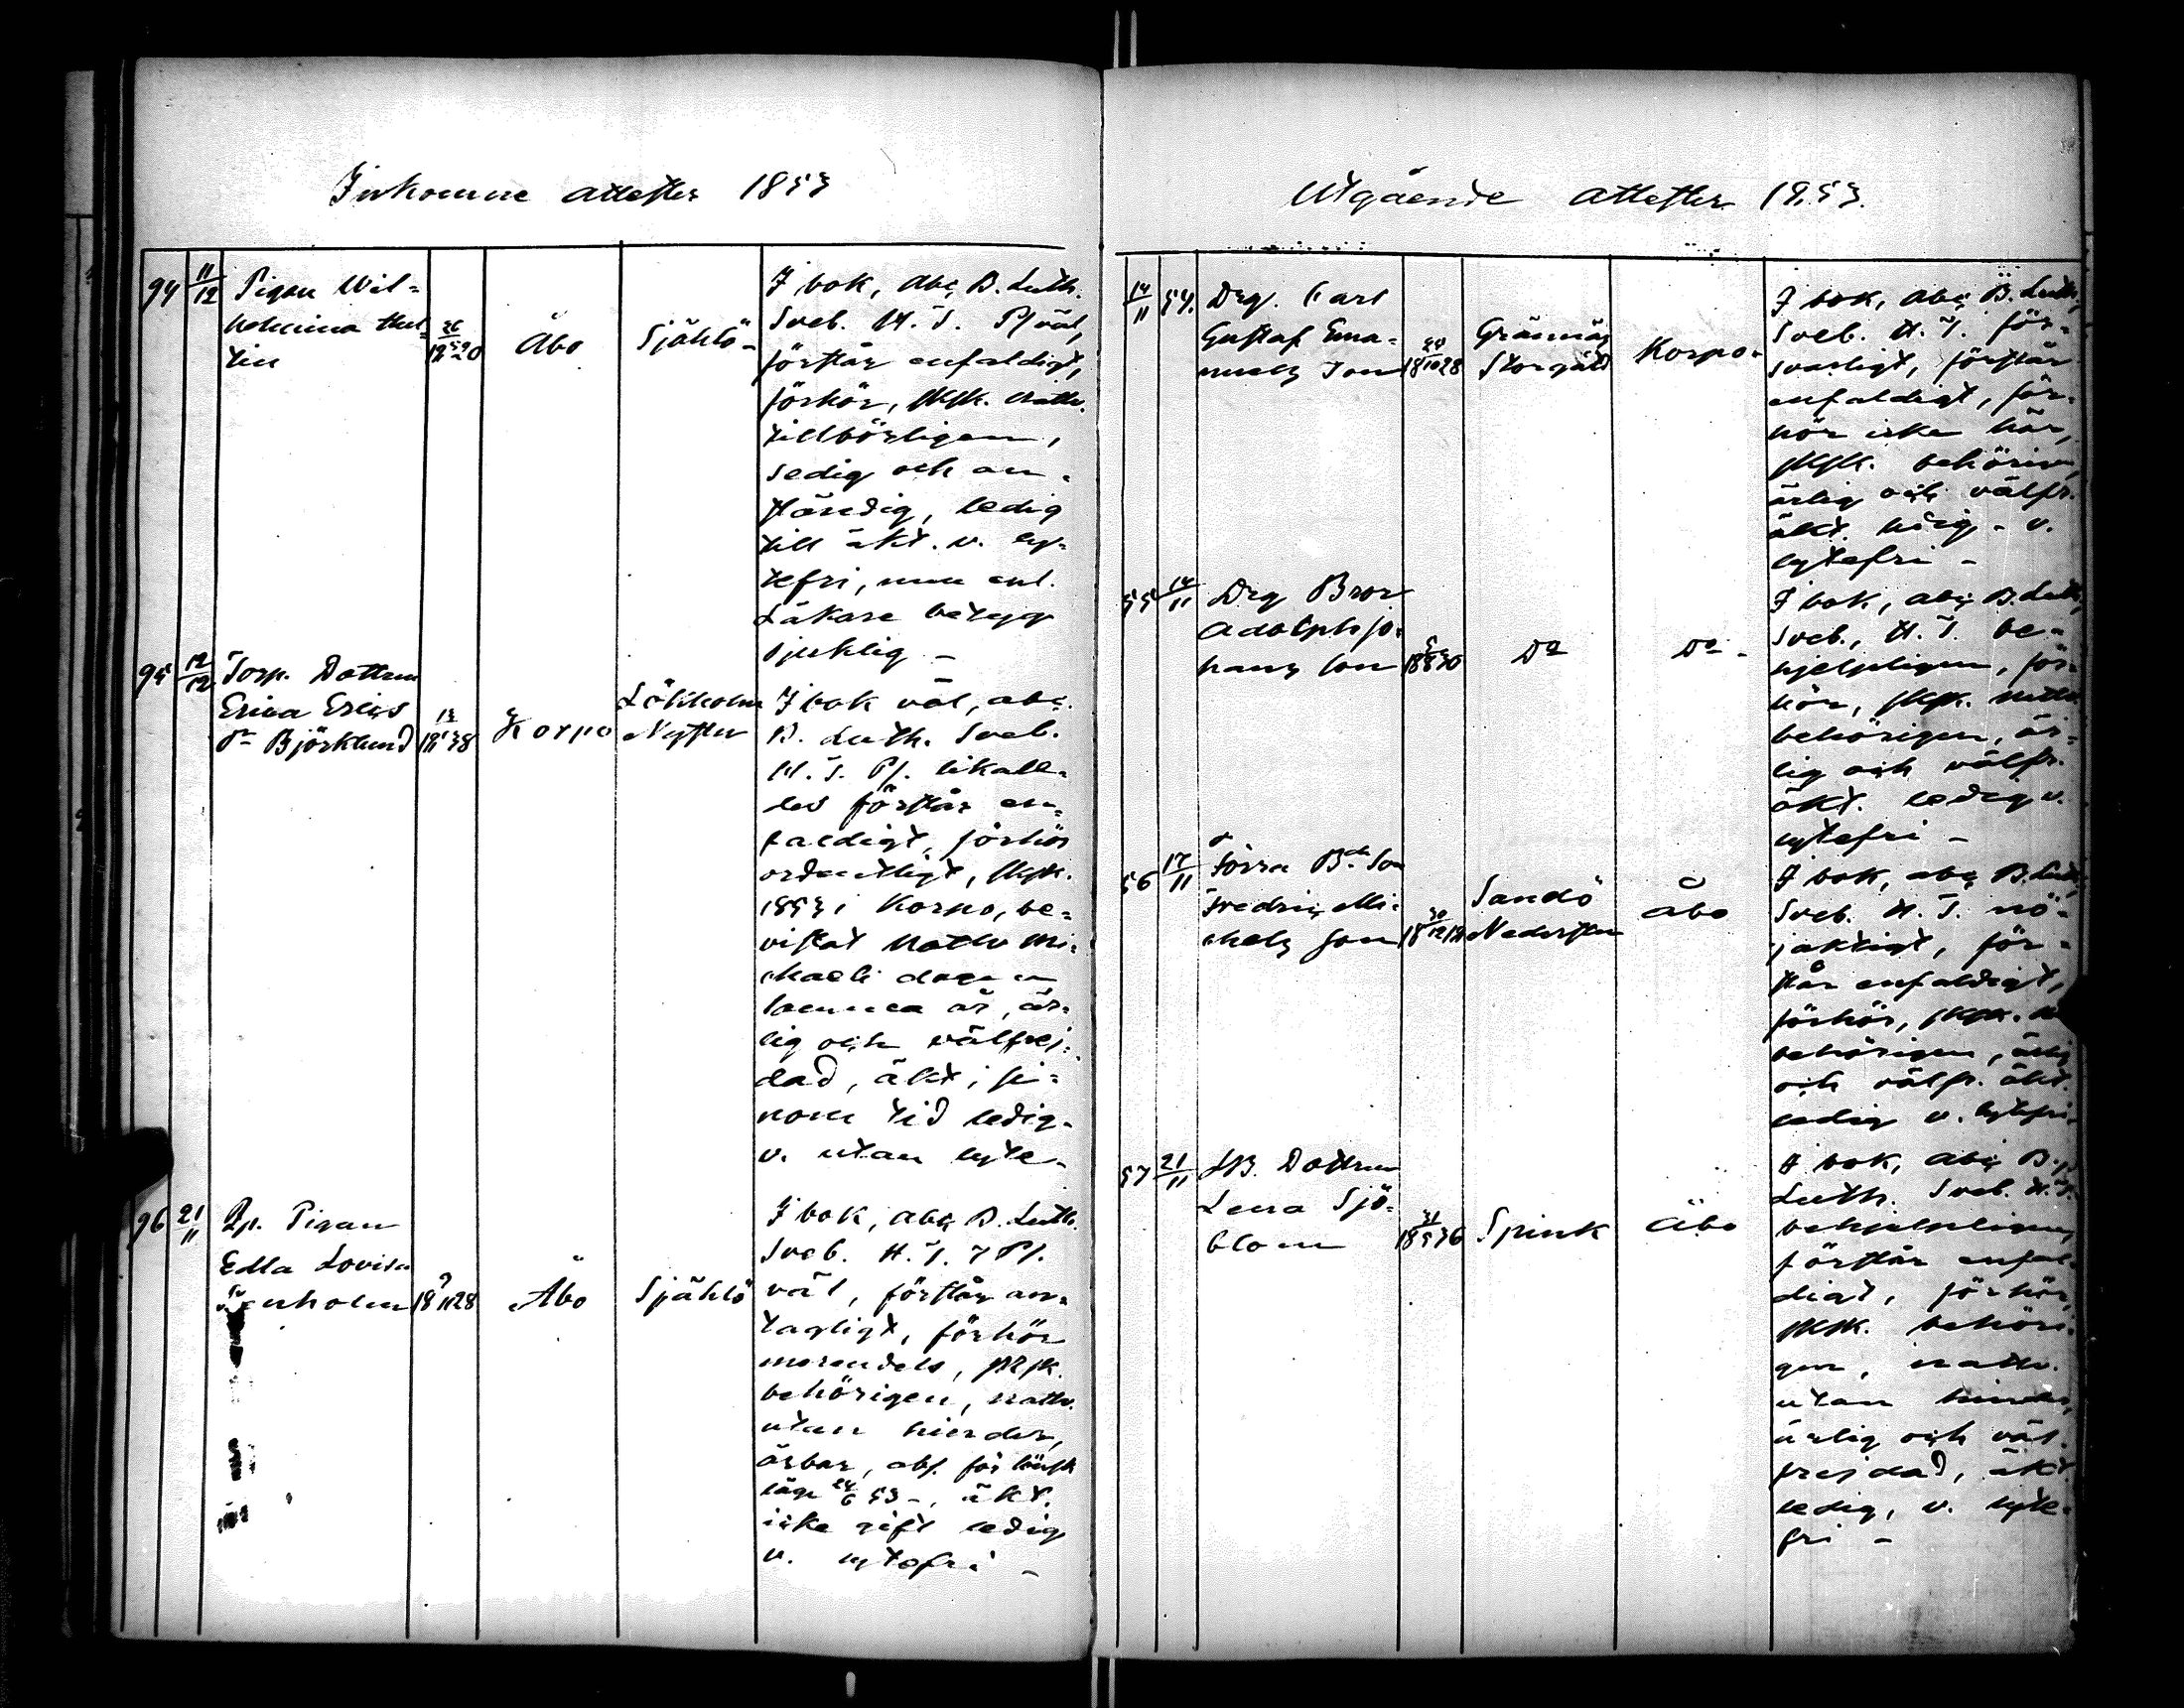 Inkomne attester 1853
94 11/12 Pigan Wil-
helmina Hul-
tin
Åbo
Själö-
I bok, abc, B. Luth.
Sveb. H. T. Ps väl,
förstår enfaldigt,
förhör, skrk. nattv.
tillbörligen,
sedig och an-
ständig, ledig
till äkt. v. ly-
tefri, men enl.
Läkare betygg
sjuklig -
95 12/12 Torp. Dottren
Erica Erics
dr Björklund
Korpo
Nystu
I bok väl, abc.
B. Luth. Sveb.
H. T. Ps. likale-
des förstår en-
faldigt, förhör
ordentligt, skrk.
1853 i Korpo, be-
vistat nattv Mi-
chaeli dagen
samma år, är-
lig och välfrej-
dad, äkt, i si-
nom tid ledig-
v. utan lyte-
96 21/11 Pigan
Edla Lovisa
Åbo
Själö
I bok, abc B. Luth.
Sveb. H. T. Ps.
väl, förstår an-
tagligt, förhör
merendels, skrk.
behörigen, nattv.
utan hinder,
ärbar, abs. för lönsk
läge 24/6 53 -, äkt.
icke gift ledig
v. lytefri -
Utgående attester 1853.
14/11 54. Drg. Carl
Gustaf Ema-
nuels son
Storgård
Korpo-
I bok, abc B. Luth,
Sveb. H. T. för-
svarligt, förstår
enfaldigt, för-
hör icke här,
skrk. behörigen,
ärlig och välfr.
äkt. v.
lytefri -
55 14/11 Drg Bror
Adolph Jo-
hans son
Do
Do -
I bok, abc B. Luth,
Sveb., H. T. be-
hjelpligen, för-
hör, skrk. nattv
behörigen, är-
lig och välfr.
äkt. ledig v.
lytefri -
56 17/11 Förra Bde Son
Fredric Mi-
chels son
Sandö
Nederstu
Åbo
I bok, abc B. Luth,
Sveb. H. T. nö-
jaktigt, för-
står enfaldigt,
förhör, skrk. n
behörigen, ärlig
och välfr. äkt.
ledig v. lytefri-
57 21/11 Dottren
Lena Sjö-
blom
Spink
Åbo
I bok, abc B.
Luth. Sveb. H. T.
behjelpligen,
förstår enfal-
digt, förhör,
skrk. behöri-
gen, nattv.
utan hinder,
ärlig och väl-
frejdad, äkt
ledig, v. lyte-
fri -